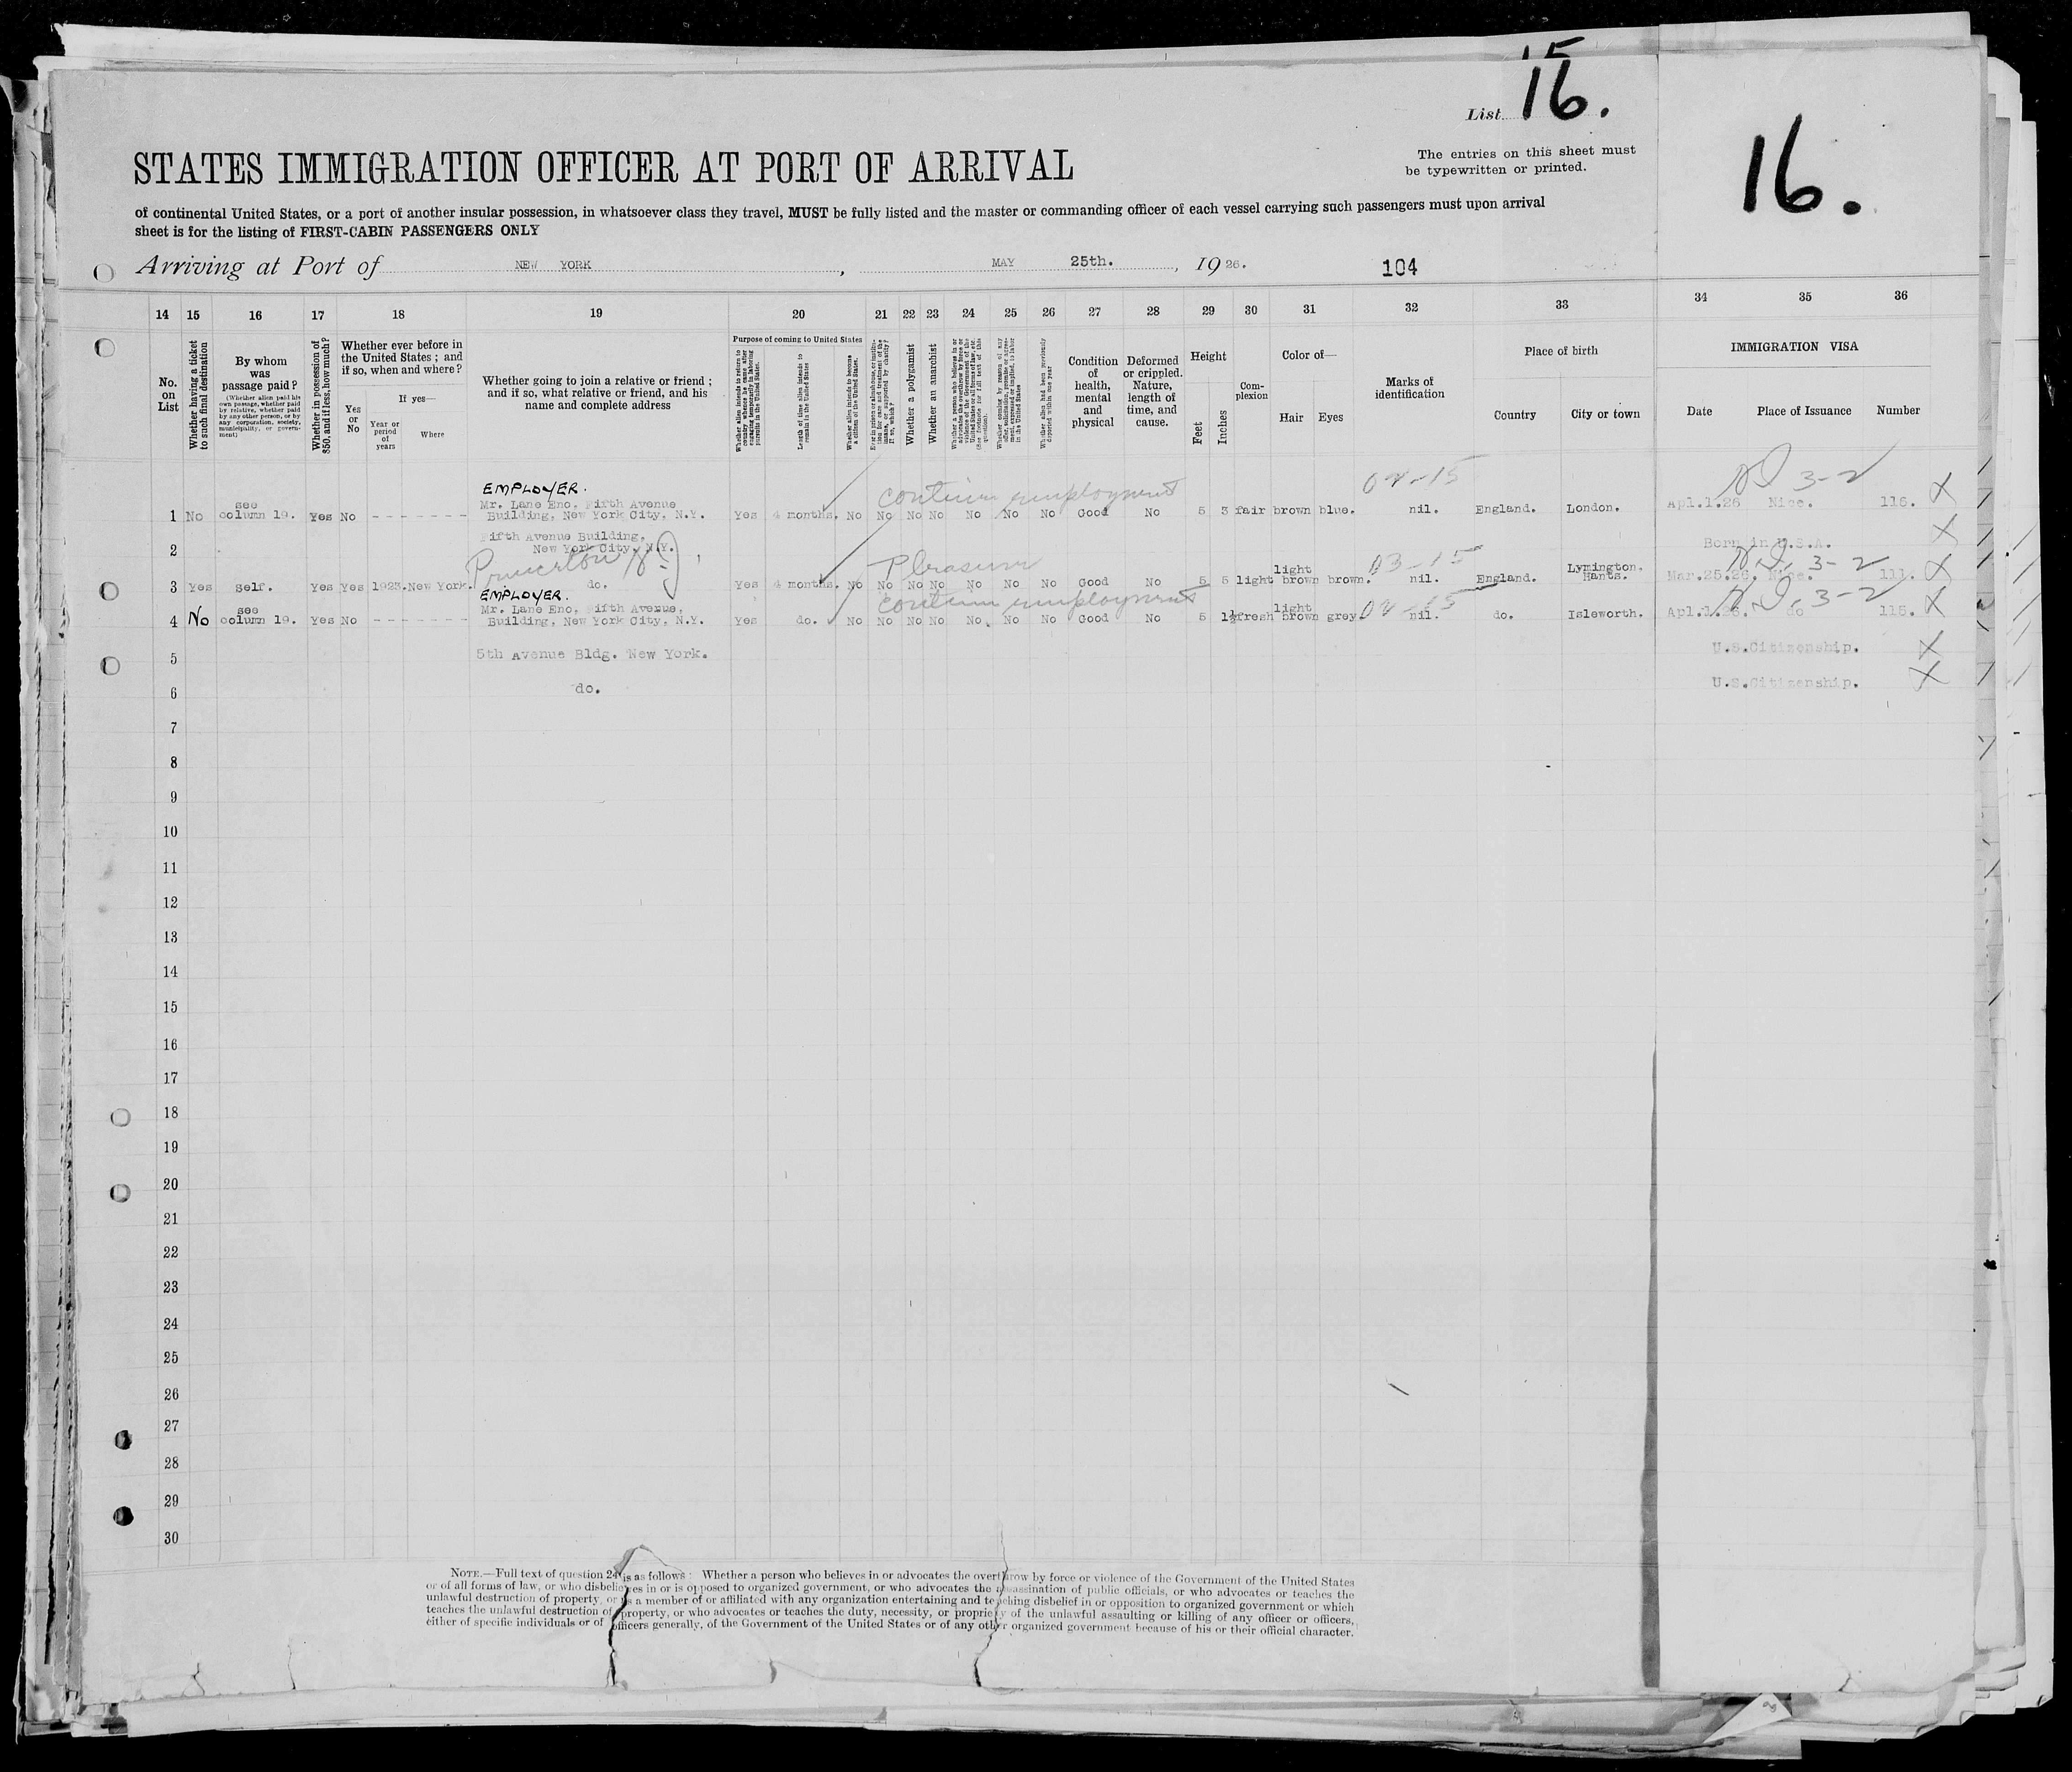 15
List 16.
16.
The entries on this sheet must
be typewritten or printed.
STATES IMMIGRATION OFFICER AT PORT OF ARRIVAL
of continental United States, or a port of another insular possession, in whatsoever class they travel, MUST be fully listed and the master or commanding officer of each vessel carrying such passengers must upon arrival
sheet is for the listing of FIRST-CABIN PASSENGERS ONLY
Arriving at Port of NEW YORK, MAY 25th., 1926. 104
14 15 16 17 18 19 20 21 22 23 24 25 26 27 28 29 30 31 32 33 34 35 36
No. on List
Whether having a ticket to such final destination
By whom was passage paid?
(Whether alien paid his own passage, whether paid by relative, whether paid by any other person, or by any corporation, society, municipality, or government)
Whether in possession of $50, and if less, how much?
Whether ever before in the United States; and if so, when and where?
Yes or No
If yes—
Year or period of years
Where
Whether going to join a relative or friend; and if so, what relative or friend, and his name and complete address
Purpose of coming to United States
Whether alien intends to return to country whence he came after engaging temporarily in laboring pursuits in the United States.
Length of time alien intends to remain in the United States
Whether alien intends to become a citizen of the United States.
Ever in prison or almshouse, or institution for care and treatment of the insane, or supported by charity? If so, which?
Whether a polygamist
Whether an anarchist
Whether a person who believes in or advocates the overthrow by force or violence of the Government of the United States or all forms of law, etc. (See footnote for full text of this question).
Whether coming by reason of any offer, solicitation, promise or agreement, expressed or implied, to labor in the United States
Whether alien had been previously deported within one year
Condition of health, mental and physical
Deformed or crippled. Nature, length of time, and cause.
Height
Feet Inches
Complexion
Color of—
Hair Eyes
Marks of identification
Place of birth
Country City or town
IMMIGRATION VISA
Date Place of Issuance Number
EMPLOYER. continue employment 02-15 ND 3-2
1 No see column 19. Yes No - - - - - - - Mr. Lane Eno, Fifth Avenue Building, New York City, N.Y. Yes 4 months. No No No No No No No Good No 5 3 fair brown blue. nil. England. London. Apl.1.26 Nice. 116. X
2 Fifth Avenue Building, New York City, N.Y. Born in U.S.A. X
Princeton N.J. Pleasure 03-15 N.D. 3-2
3 Yes self. Yes Yes 1923. New York. do. Yes 4 months. No No No No No No No Good No 5 5 light light brown brown. nil. England. Lymington, Hants. Mar.25.26. Nice. 111. X
EMPLOYER. continue employment 02-15 N.D. 3-2
4 No see column 19. Yes No - - - - - - - Mr. Lane Eno, Fifth Avenue, Building, New York City, N.Y. Yes do. No No No No No No No Good No 5 1½ fresh light brown grey. nil. do. Isleworth. Apl.1.26. do 115. X
5 5th Avenue Bldg. New York. U.S.Citizenship. X
6 do. U.S.Citizenship. X
7
8
9
10
11
12
13
14
15
16
17
18
19
20
21
22
23
24
25
26
27
28
29
30
NOTE.—Full text of question 24 is as follows: Whether a person who believes in or advocates the overthrow by force or violence of the Government of the United States
or of all forms of law, or who disbelieves in or is opposed to organized government, or who advocates the assassination of public officials, or who advocates or teaches the
unlawful destruction of property, or is a member of or affiliated with any organization entertaining and teaching disbelief in or opposition to organized government or which
teaches the unlawful destruction of property, or who advocates or teaches the duty, necessity, or propriety of the unlawful assaulting or killing of any officer or officers,
either of specific individuals or of officers generally, of the Government of the United States or of any other organized government because of his or their official character.